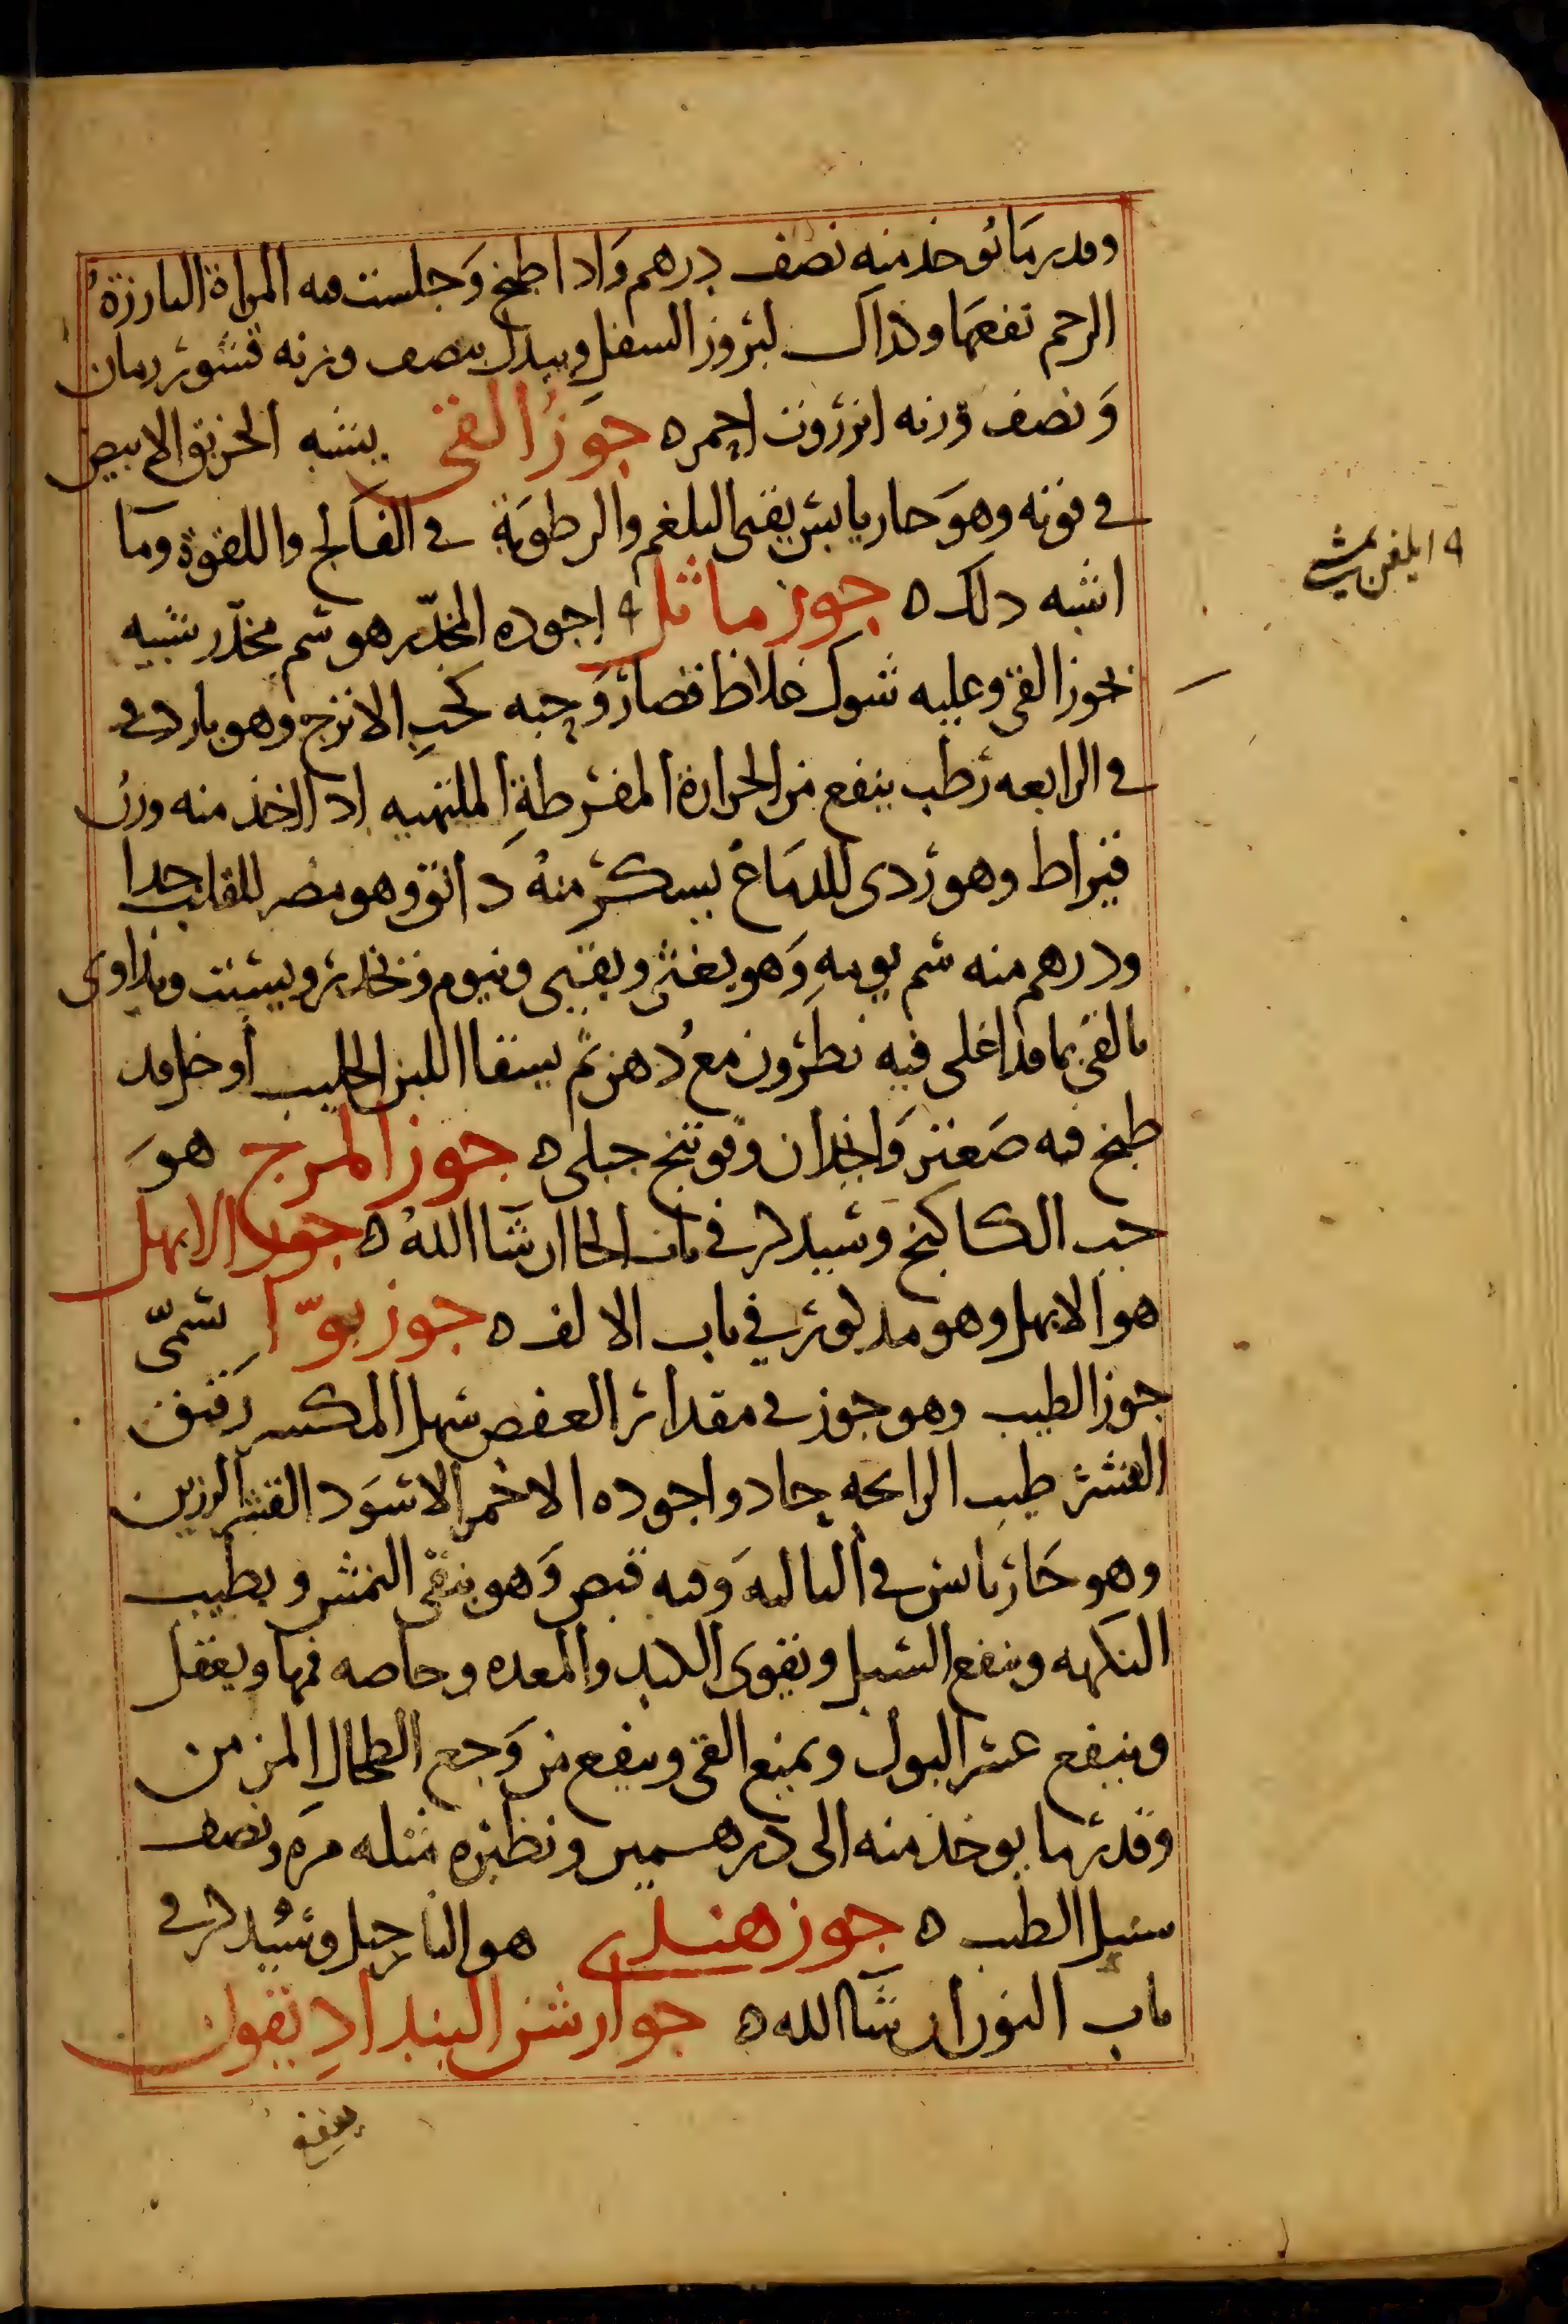 وقدر ما يوخذ منه نصف درهم وَاذا طبخ وَجلست فيه المراة البارزة
الرحم نفعها وكذلك لبروز السفل ويبدل بنصف وزنه قشور رمان
وَنصف وزنه انزروت احمر ه جَوزُ القي يشبه الخربق الابيض
في قوته وهوَ حار يابس يقي البلغم والرطوبَة في الفالج واللقوة ومَا
اشبه ذلك ه جوز ماثل اجوده المخدّر هو سم مخدّر شبيه
بجوز القي وعليه شوك غلاظ قصار وَحبه كحب الاترج وهو بارد في
في الرابعه رَطب ينفع من الحرارة المفرطةِ الملتهبه اذا اخذ منه وزنُ
قيراط وهو رَدى للدمَاغ يسكر منهُ دَانق وهو مضر للقلب جدا
ودرهم منه سم يومهِ وَهو يغثى ويقيى وينوم ويخدر ويسبت ويداوى
بالقى بما قد اغلى فيه نطرُون مع دُهن ثم يسقا اللبن الحليب أو خل قد
طبخ فيه صَعتر وَانجدان وفوتنج جبلي ه جوز المرج هوَ
حب الكاكنج وَسيذكر في باب الحا ان شَا اللهُ ه جوز الابهل
هو الابهل وهو مذكور في باب الالف ه جوز بوّا يسَمّى
جوز الطيب وهو جوز في مقدار العفص سهل المكسر رَقيق
القشر طيب الرايحه حاد واجوده الاحمر الاسوَد القشر الرزين
وهو حَار يابس في الثانيه وَفيه قبض وَهو ينقى النمش ويطيب
النكهه وينفع السبل ويقوى الكبد والمعده وخاصه فمها ويعقل
وينفع عسر البول ويمنع القى وينفع من وَجع الطحال المزمن
وقدر ما يوخذ منه الى درهمين ونظيره مثله مرَه ونصف
سنبل الطيب ه جوز هندي هو النَارجيل وسَيُذكر في
باب النون ان شَا الله ه جوارشن البنداديقون